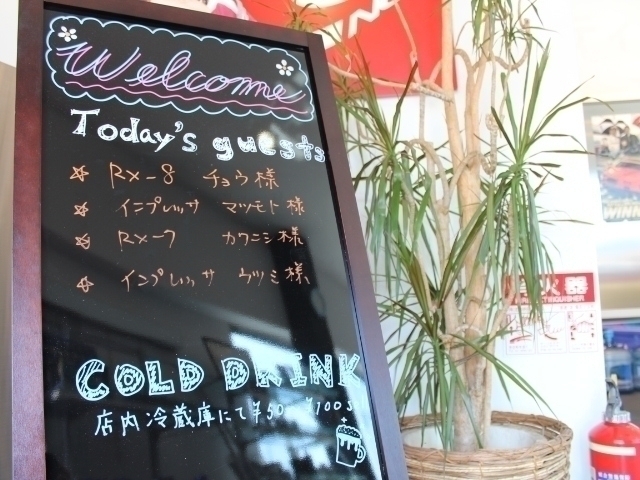 Welcome
Today's guests
RX-8 チョウ様
インプレッサ マツモト様
RX-7 カワニシ様
インプレッサ ウツミ様
COLD DRINK
店内冷蔵庫にて¥50 ¥100
火器